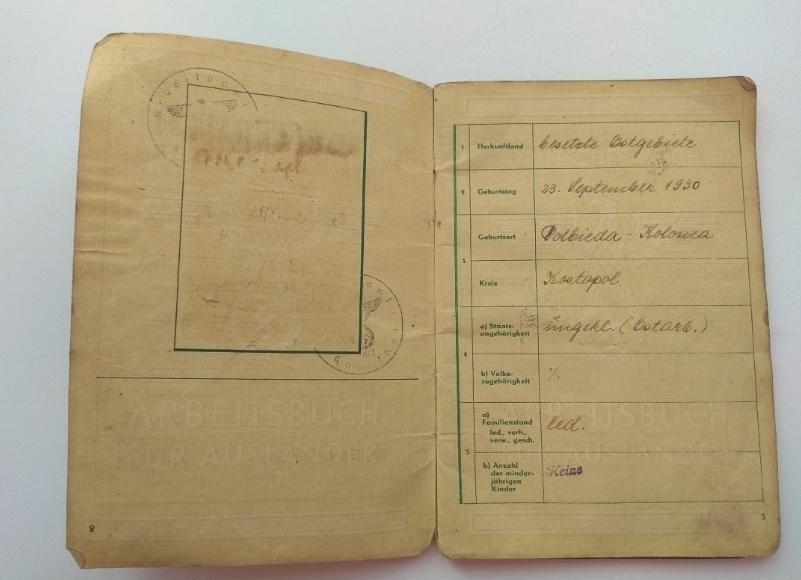 ARBEITSBUCH
FÜR AUSLÄNDER
2
1 Herkunftland besetzte Ostgebiete
2 Geburtstag 23. September 1930
Geburtsort - Kolonea
3
Kreis Kostopol
a) Staats-
angehörigkeit ungekl. (Ostarb.)
4
b) Volks-
zugehörigkeit %.
a)
Familienstand led.
led., verh.,
verw., gesch.
5
b) Anzahl Keine
der minder-
jährigen
Kinder
ARBEITSBUCH
AUSLÄNDER
3